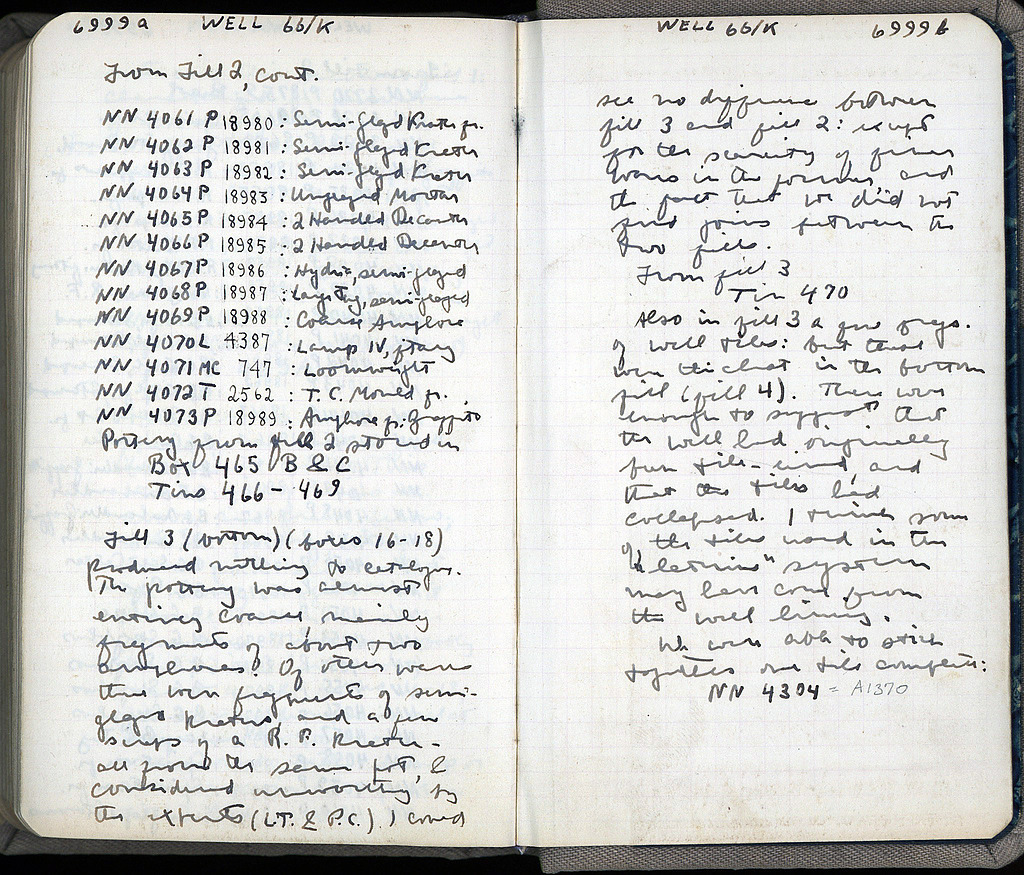 6999a WELL 66/K
From Fill 2, cont.
NN 4061 P 18980 : Semi-glazed Krater fr.
NN 4062 P 18981 : Semi-glazed Krater
NN 4063 P 18982 : Semi-glazed Krater
NN 4064 P 18983 : Unglazed Mortar
NN 4065 P 18984 : 2 Handled Decanter
NN 4066 P 18985 : 2 Handled Decanter
NN 4067 P 18986 : Hydria, semi-glazed
NN 4068 P 18987 : Large Jug, semi-glazed
NN 4069 P 18988 : Coarse Amphora
NN 4070 L 4387 : Lamp IV,
NN 4071 MC 747 : Loomweight
NN 4072 T 2562 : T.C. Mould fr.
NN 4073 P 18989 : Amphora fr. Graffito
Pottery from fill 2 stored in
Box 465 B & C
Tins 466 - 469
Fill 3 (bottom) (boxes 16-18)
produced nothing to catalogue.
The pottery was almost
entirely coarse mainly
fragments of about two
amphoras. Of other wares
there were fragments of semi-
glazed kraters, and a few
scraps of a R.F. krater -
all from the same pot, &
considered unworthy by
the experts (L.T. & P.C.). I could
WELL 66/K 6999b
see no difference between
fill 3 and fill 2: except
for the scarcity of finer
wares in the former, and
the fact that we did not
find joins between the
two fills.
From fill 3
Tin 470
Also in fill 3 a few frags.
of well tiles: but these
were thickest in the bottom
fill (fill 4). There were
enough to suggest that
the well had originally
been tile-lined, and
that the tiles had
collapsed. I think some
of the tiles used in the
"latrine" system
may have come from
the well lining.
We were able to stick
together one tile complete:
NN 4304 = A1370